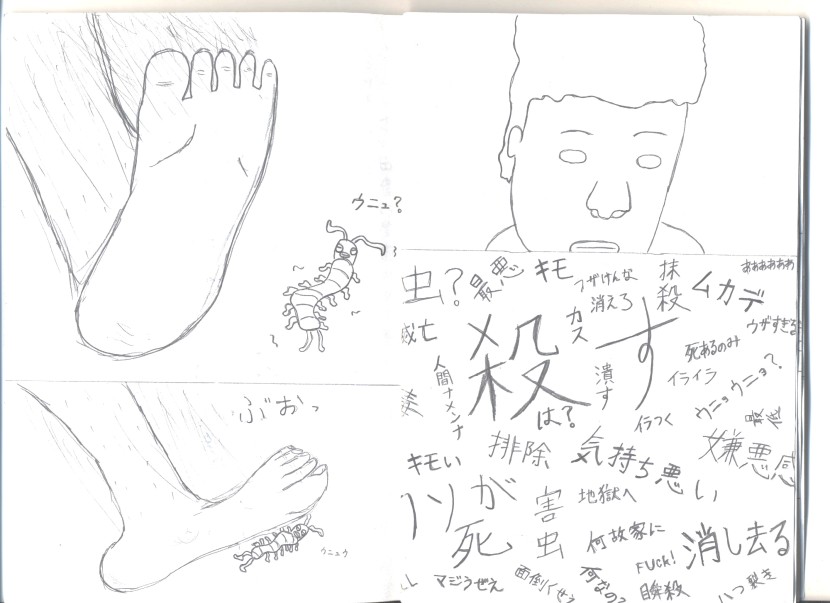 ウニュ?
ぶおっ
ウニュウ
虫?
最悪
キモ
フザけんな
消えろ
抹殺
ムカデ
ああああああ
滅亡
殺す
カス
潰す
死あるのみ
ウザすぎる
人間ナメンナ
は?
イライラ
イラつく
ウニョウニョ?
キモい
排除
気持ち悪い
嫌悪感
が
死
害虫
地獄へ
何故家に
消し去る
マジうぜえ
面倒くせえ
何なの
FUCK!
瞬殺